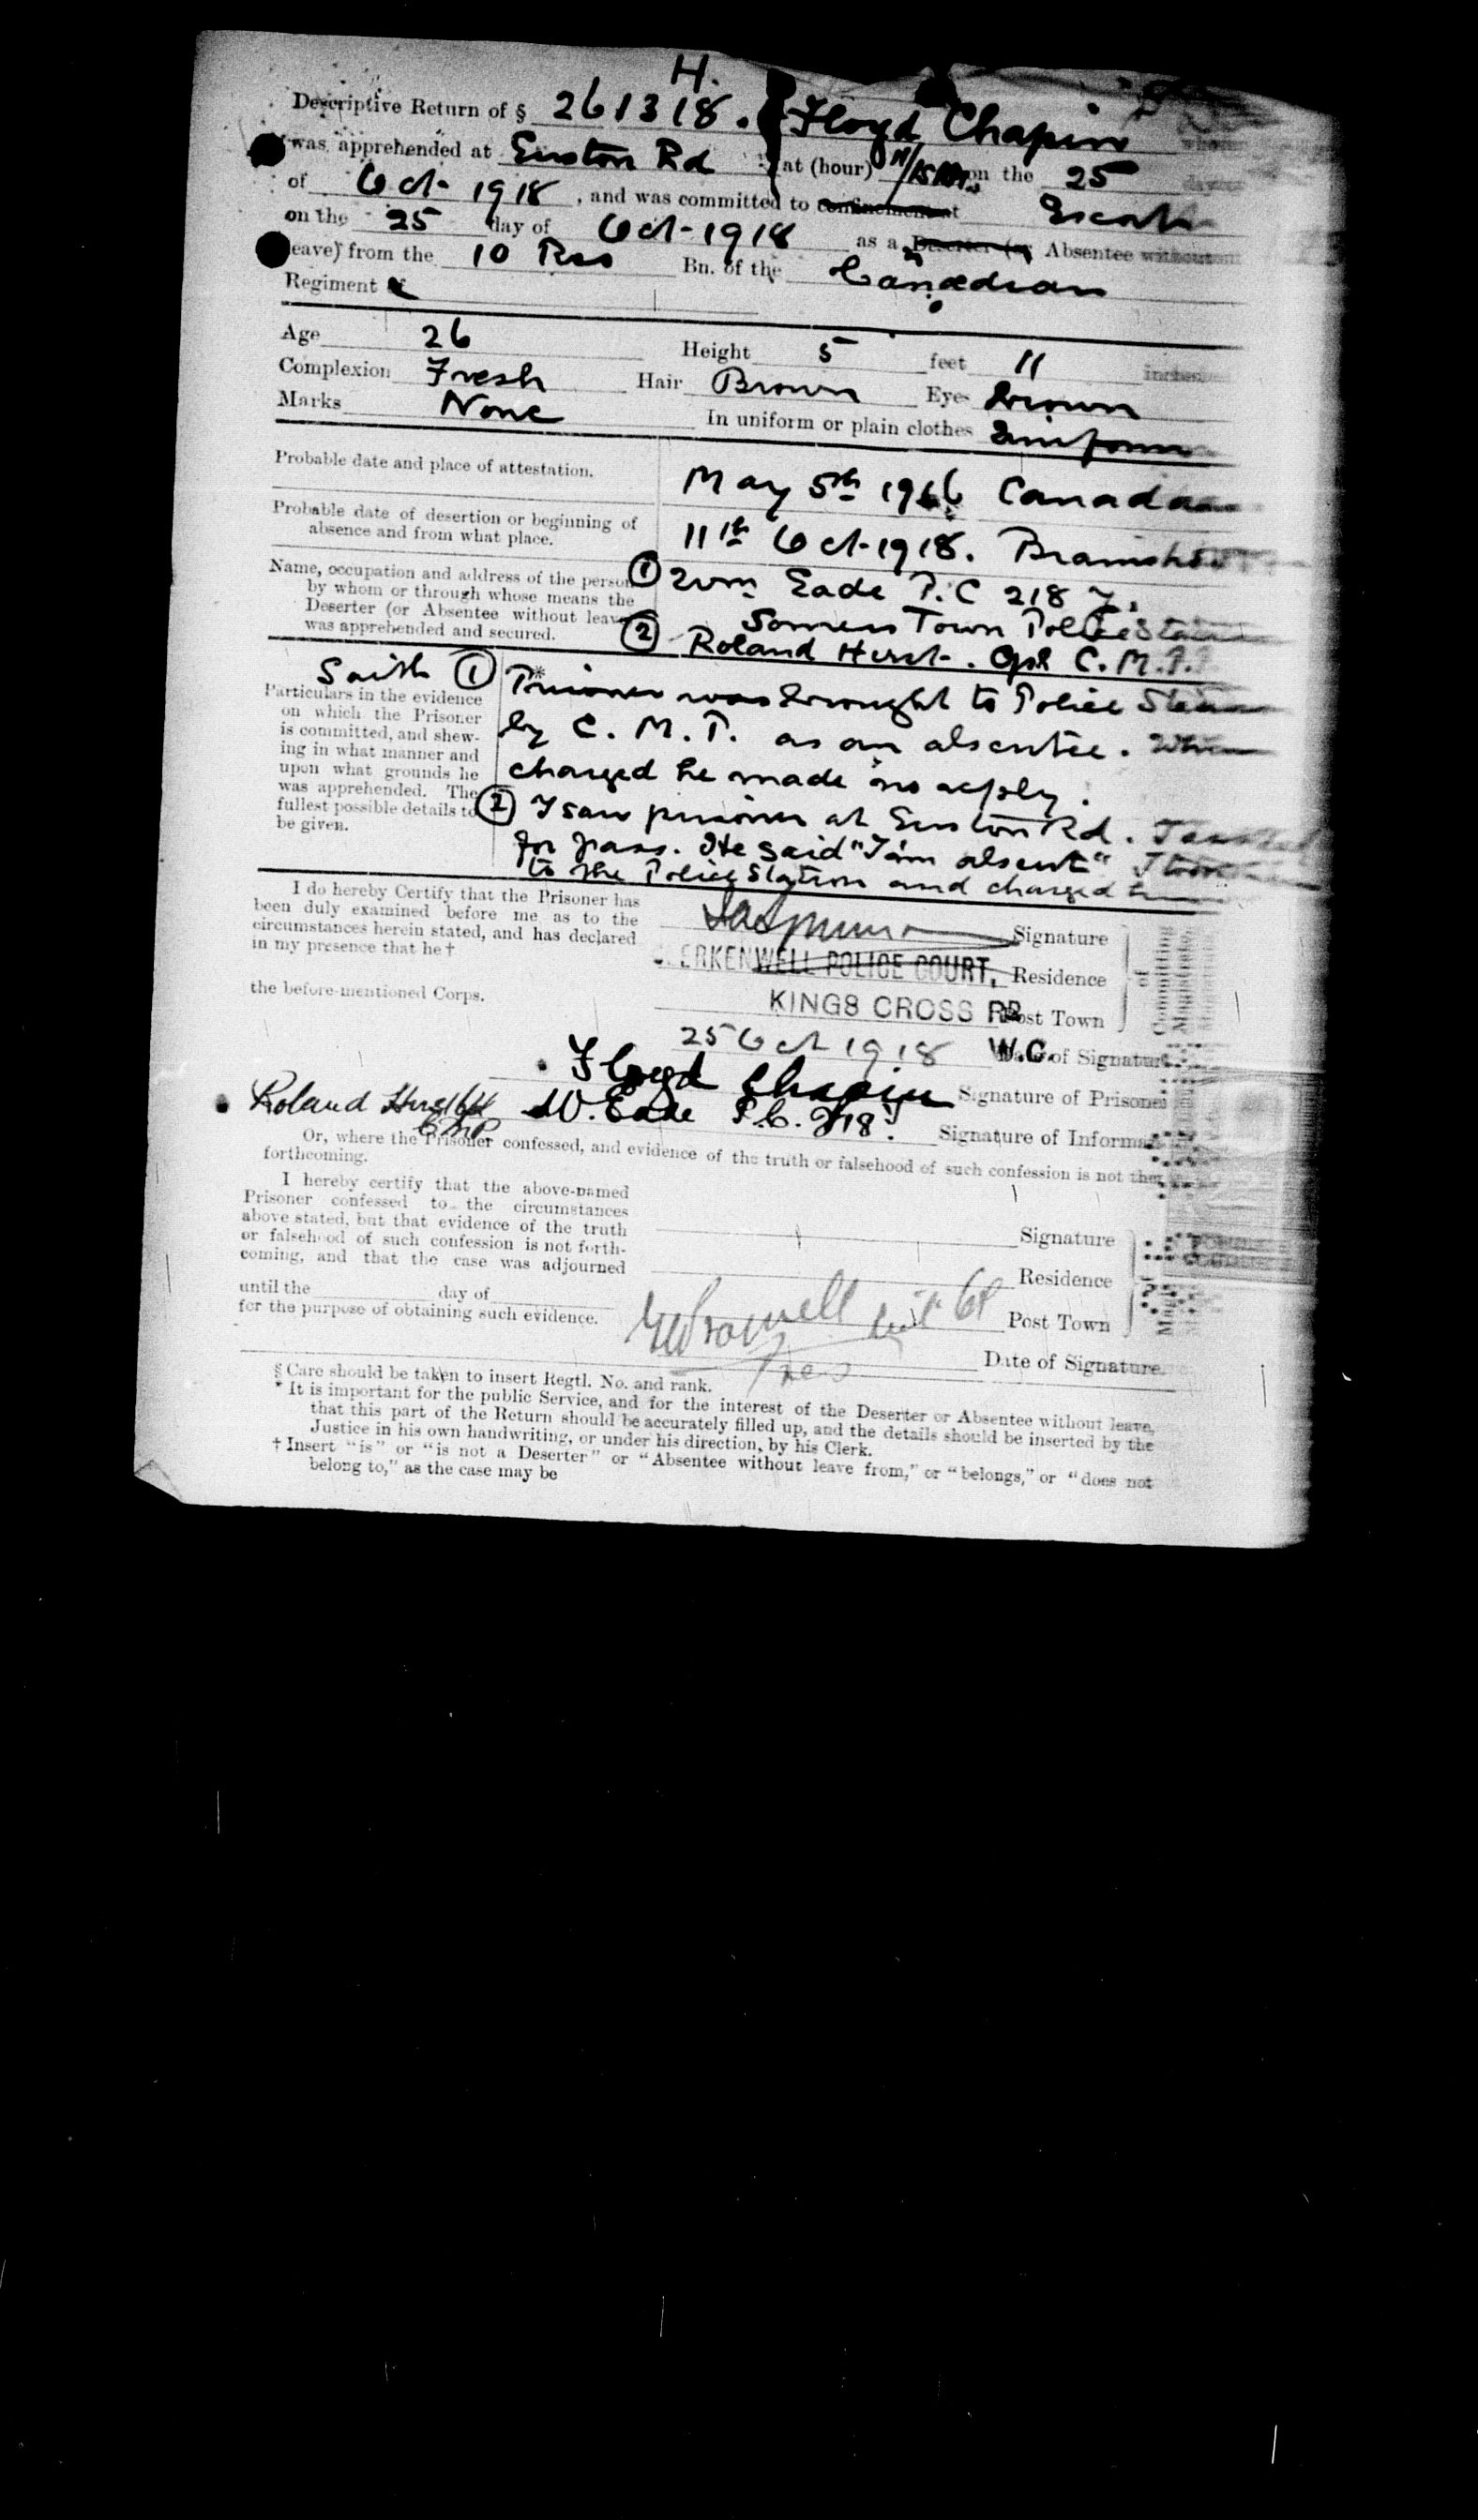 H.
Descriptive Return of § 261318. Floyd Chapin
was apprehended at Euston Rd at (hour) on the 25
of Oct- 1918, and was committed to confinement at Escort
on the 25 day of Oct-1918 as a Deserter (or Absentee without
leave) from the 10 Res Bn. of the Canadian
Regiment
Age 26 Height 5 feet 11 inches
Complexion Fresh Hair Brown Eyes brown
Marks None In uniform or plain clothes Uniform
Probable date and place of attestation. May 5th 1916 Canada
Probable date of desertion or beginning of
absence and from what place. 11th Oct-1918. Bramshott
Name, occupation and address of the person
by whom or through whose means the
Deserter (or Absentee without leave)
was apprehended and secured.
① Wm Eade P.C 218 Y.
Somers Town Police Station
② Roland Hirst. Cpl C.M.P.
Saith
Particulars in the evidence
on which the Prisoner
is committed, and shew-
ing in what manner and
upon what grounds he
was apprehended. The
fullest possible details to
be given.
① Prisoner was brought to Police Station
by C. M. P. as an absentee. When
charged he made no reply.
② I saw prisoner at Euston Rd. I asked
for pass. He said "I am absent" I took him
to the Police Station and charged
I do hereby Certify that the Prisoner has
been duly examined before me as to the
circumstances herein stated, and has declared
in my presence that he †
the before-mentioned Corps.
Signature
CLERKENWELL POLICE COURT, Residence
KINGS CROSS RD Post Town
25 Oct 1918 W.C. Date of Signature
Floyd Chapin Signature of Prisoner
Roland W. Eade P.C. 218Y. Signature of Informant
CMP
Or, where the Prisoner confessed, and evidence of the truth or falsehood of such confession is not then
forthcoming.
I hereby certify that the above-named
Prisoner confessed to the circumstances
above stated, but that evidence of the truth
or falsehood of such confession is not forth-
coming, and that the case was adjourned
until the day of
for the purpose of obtaining such evidence.
Signature
Residence
Post Town
Date of Signature
§ Care should be taken to insert Regtl. No. and rank.
* It is important for the public Service, and for the interest of the Deserter or Absentee without leave,
that this part of the Return should be accurately filled up, and the details should be inserted by the
Justice in his own handwriting, or under his direction, by his Clerk.
† Insert "is" or "is not a Deserter" or "Absentee without leave from," or "belongs," or "does not
belong to," as the case may be